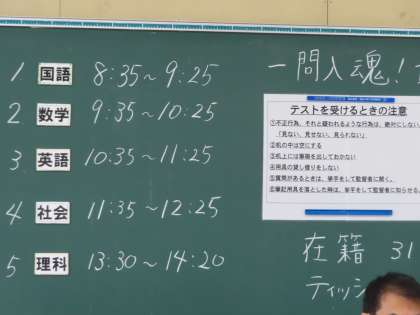 1 国語 8:35~9:25
2 数学 9:35~10:25
3 英語 10:35~11:25
4 社会 11:35~12:25
5 理科 13:30~14:20
一問入魂!
テストを受けるときの注意
①不正行為、それと疑われるような行為は、絶対にしない。
「見ない、見せない、見られない」
②机の中は空にする
③机上には筆箱を出しておかない
④用具の貸し借りをしない
⑤質問があるときは、挙手をして監督者に聞く。
⑥筆記用具を落とした時は、挙手をして監督者に知らせる。
在籍 31
ティッシ